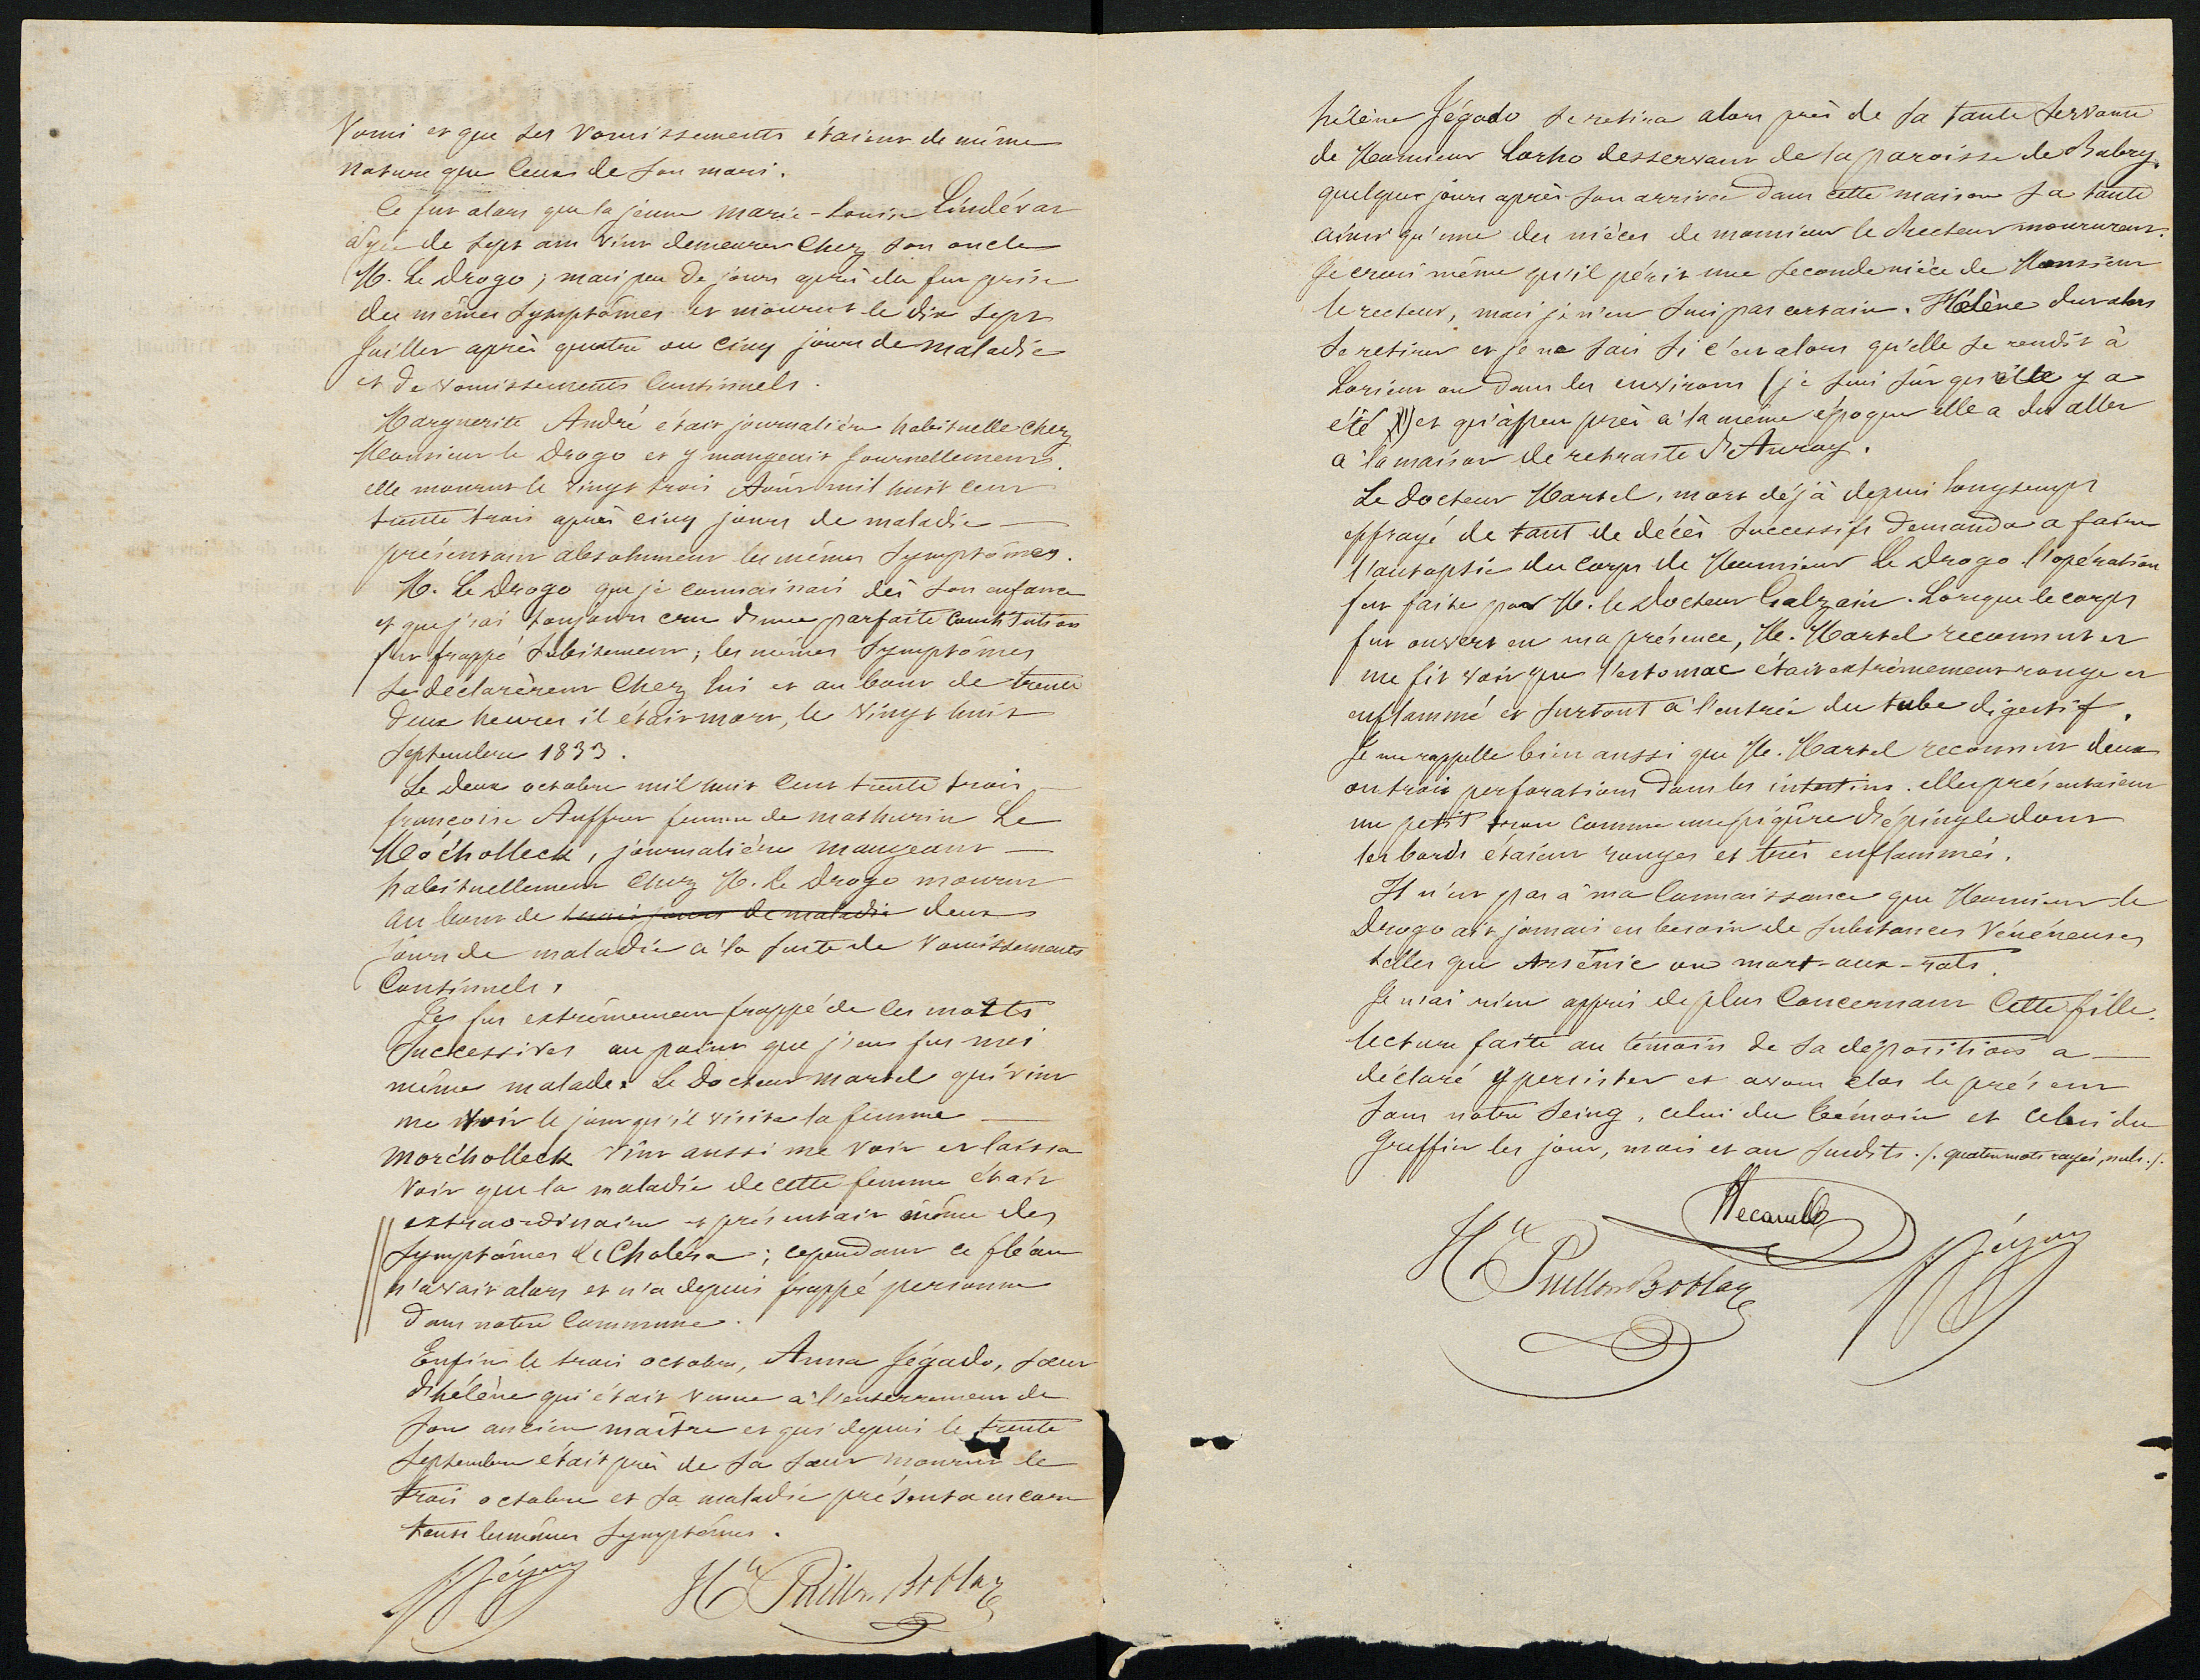 Vomi et que ses vomissements étaient de même
nature que ceux de son mari.
Ce fut alors que la jeune marie-Louise Lindévat
âgée de sept ans vint demeurer chez son oncle
M. Le Drogo ; mais peu de jours après elle fut prise
des mêmes symptômes et mourut le dix sept
Juillet après quatre ou cinq jours de maladie
et de vomissements continuels.
Marguerite André était journalière habituelle chez
Monsieur le Drogo et y mangeait journellement.
elle mourut le vingt trois Août mil huit cent
trente trois après cinq jours de maladie —
présentant absolument les mêmes symptômes.
M. Le Drogo que je connaissais dès son enfance
et que j'ai toujours cru d'une parfaite constitution
fut frappé subitement ; les mêmes symptômes
se déclarèrent chez lui et au bout de trente
deux heures il était mort, le vingt huit
Septembre 1833.
Le deux octobre mil huit cent trente trois —
françoise Auffret femme de mathurin Le
journalière mangeant —
habituellement chez M. Le Drogo mourut
au bout de trois jours de maladie deux
jours de maladie a la suite de vomissements
continuels.
Je fus extrêmement frappé de ces morts
successives au point que j'en fus moi
même malade. Le Docteur martel qui vint
me voir le jour qu'il visita la femme —
morchoLleck vint aussi me voir et laissa
voir que la maladie de cette femme était
extraordinaire et présentait même des
symptômes de Choléra ; cependant ce fléau
n'avait alors et n'a depuis frappé personne
dans notre commune.
Enfin le trois octobre, Anna Jégado, sœur
d'hélène qui était venue à l'enterrement de
son ancien maître et qui depuis le trente
septembre était près de sa sœur mourut le
trois octobre et sa maladie présenta encore
tous les mêmes symptômes.
Hte Puillon Boblay
hélène Jégado se retira alors près de sa tante servante
de Monsieur Lorho desservant de la paroisse de Bubry.
quelques jours après son arrivée dans cette maison sa tante
ainsi qu'une des nièces de monsieur le Recteur moururent.
Je crois même qu'il périt une seconde nièce de Monsieur
le recteur, mais je n'en suis pas certain. Hélène dut alors
se retirer et je ne sais si c'est alors qu'elle se rendit à
Lorient ou dans les environs (je suis sûr qu'elle y a
été) et qu'à peu près à la même époque elle a dû aller
à la maison de retraite d'Auray.
Le Docteur Martel, mort déjà depuis longtemps
effrayé de tant de décès successifs demanda a faire
l'autopsie du corps de Monsieur Le Drogo. l'opération
fut faite par M. le Docteur Galzain. Lorsque le corps
fut ouvert en ma présence, M. Martel reconnut et
me fit voir que l'estomac était extrêmement rouge et
enflammé et surtout à l'entrée du tube digestif.
Je me rappelle bien aussi que M. Martel reconnut deux
ou trois perforations dans les intestins. elles présentaient
un petit trou comme une piqûre d'épingle dont
les bords étaient rouges et très enflammés.
Il n'est pas à ma connaissance que Monsieur le
Drogo ait jamais eu besoin de substances vénéneuses
telles que Arsénic ou mort-aux-rats.
Je n'ai rien appris de plus concernant cette fille.
lecture faite au témoin de sa déposition a —
déclaré y persister et avons clos le présent
sous notre seing, celui du témoin et celui du
Greffier les jour, mois et an susdits ./. quatre mots rayés, nuls ./.
Hte Puillon Boblay